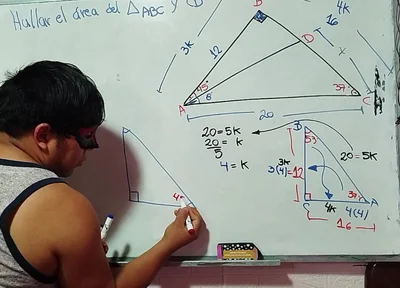 Hallar el área del △ABC y CD
B
4k
16
3k
12
D
x
45
8
37
A
C
20
20=5k
20/5 = k
4=k
B
53
3k
3(4)=12
20=5k
37
C
4k
A
4(4)
16
4